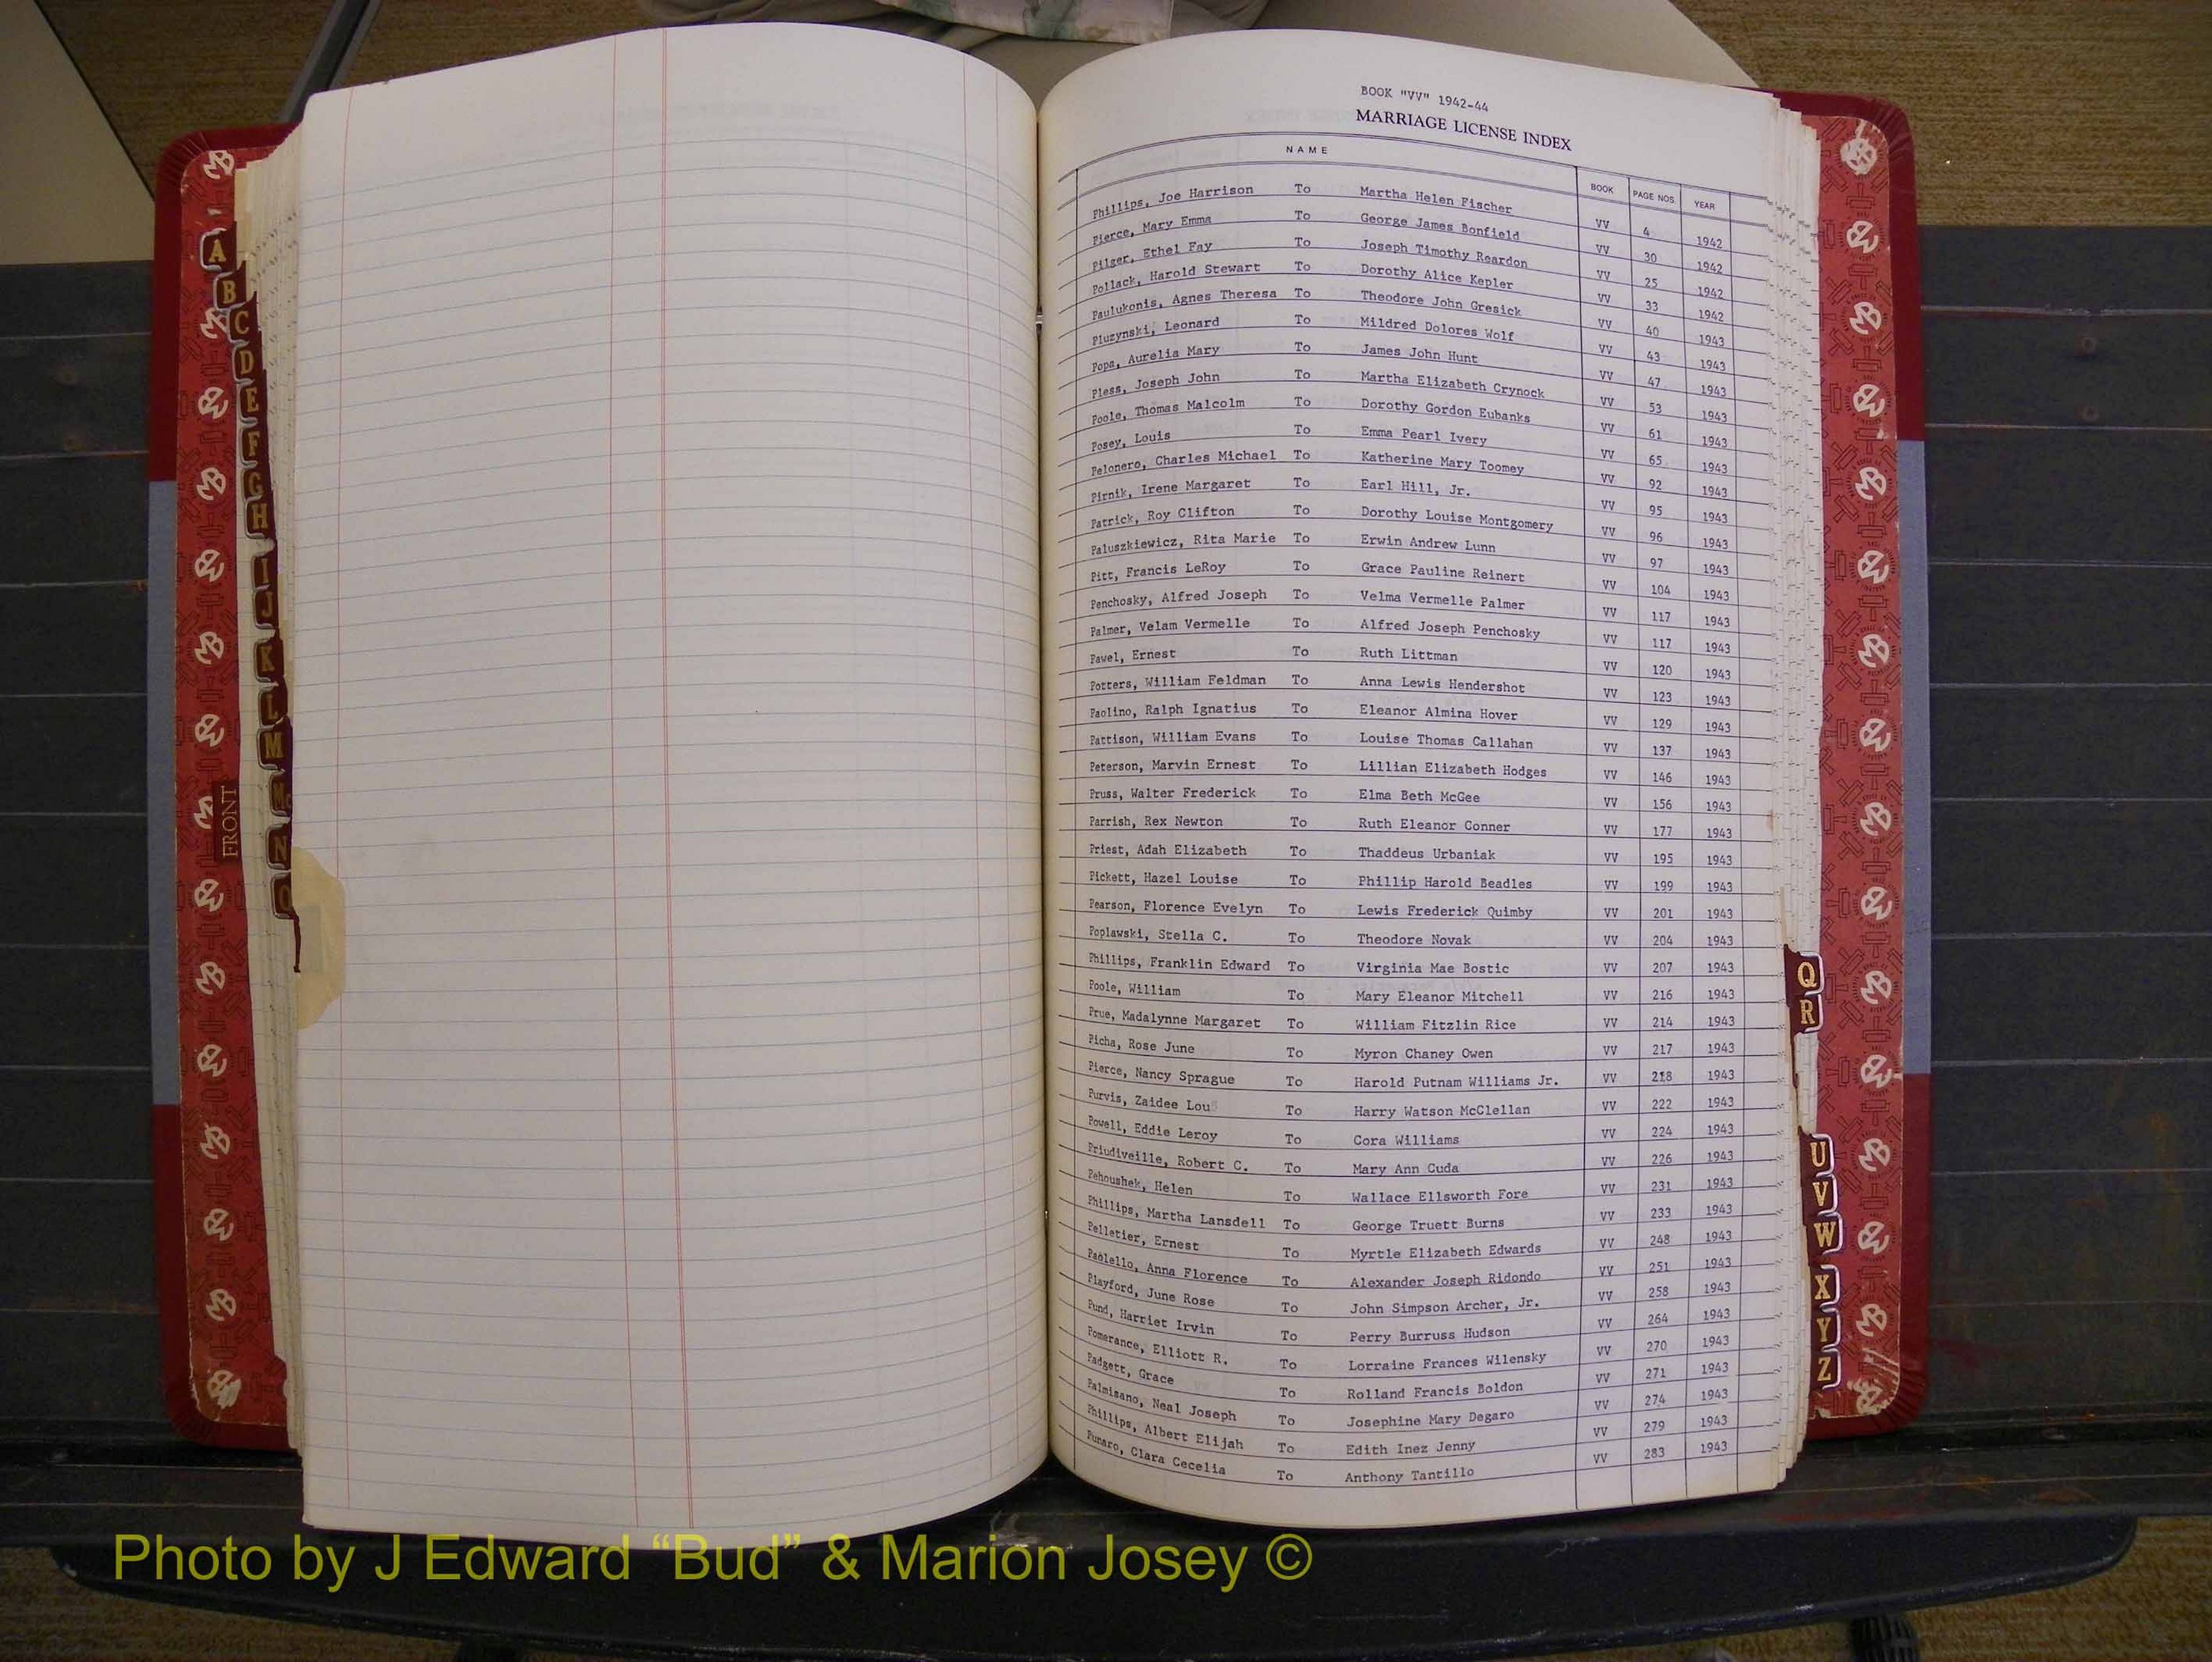 BOOK "VV" 1942-44
MARRIAGE LICENSE INDEX
NAME BOOK PAGE NOS. YEAR
Phillips, Joe Harrison To Martha Helen Fischer VV 4 1942
Pierce, Mary Emma To George James Bonfield VV 30 1942
Pilger, Ethel Fay To Joseph Timothy Reardon VV 25 1942
Pollack, Harold Stewart To Dorothy Alice Kepler VV 33 1942
Paulukonis, Agnes Theresa To Theodore John Gresick VV 40 1943
Pluzynski, Leonard To Mildred Dolores Wolf VV 43 1943
Popa, Aurelia Mary To James John Hunt VV 47 1943
Pless, Joseph John To Martha Elizabeth Crynock VV 53 1943
Poole, Thomas Malcolm To Dorothy Gordon Eubanks VV 61 1943
Posey, Louis To Emma Pearl Ivery VV 65 1943
Pelonero, Charles Michael To Katherine Mary Toomey VV 92 1943
Pirnik, Irene Margaret To Earl Hill, Jr. VV 95 1943
Patrick, Roy Clifton To Dorothy Louise Montgomery VV 96 1943
Paluszkiewicz, Rita Marie To Erwin Andrew Lunn VV 97 1943
Pitt, Francis LeRoy To Grace Pauline Reinert VV 104 1943
Penchosky, Alfred Joseph To Velma Vermelle Palmer VV 117 1943
Palmer, Velam Vermelle To Alfred Joseph Penchosky VV 117 1943
Pawel, Ernest To Ruth Littman VV 120 1943
Potters, William Feldman To Anna Lewis Hendershot VV 123 1943
Paolino, Ralph Ignatius To Eleanor Almina Hover VV 129 1943
Pattison, William Evans To Louise Thomas Callahan VV 137 1943
Peterson, Marvin Ernest To Lillian Elizabeth Hodges VV 146 1943
Pruss, Walter Frederick To Elma Beth McGee VV 156 1943
Parrish, Rex Newton To Ruth Eleanor Conner VV 177 1943
Priest, Adah Elizabeth To Thaddeus Urbaniak VV 195 1943
Pickett, Hazel Louise To Phillip Harold Beadles VV 199 1943
Pearson, Florence Evelyn To Lewis Frederick Quimby VV 201 1943
Poplawski, Stella C. To Theodore Novak VV 204 1943
Phillips, Franklin Edward To Virginia Mae Bostic VV 207 1943
Poole, William To Mary Eleanor Mitchell VV 216 1943
Prue, Madalynne Margaret To William Fitzlin Rice VV 214 1943
Picha, Rose June To Myron Chaney Owen VV 217 1943
Pierce, Nancy Sprague To Harold Putnam Williams Jr. VV 218 1943
Purvis, Zaidee Lou To Harry Watson McClellan VV 222 1943
Powell, Eddie Leroy To Cora Williams VV 224 1943
Priudiveille, Robert C. To Mary Ann Cuda VV 226 1943
Pehoushek, Helen To Wallace Ellsworth Fore VV 231 1943
Phillips, Martha Lansdell To George Truett Burns VV 233 1943
Pelletier, Ernest To Myrtle Elizabeth Edwards VV 248 1943
Paolello, Anna Florence To Alexander Joseph Ridondo VV 251 1943
Playford, June Rose To John Simpson Archer, Jr. VV 258 1943
Pund, Harriet Irvin To Perry Burruss Hudson VV 264 1943
Pomerance, Elliott R. To Lorraine Frances Wilensky VV 270 1943
Padgett, Grace To Rolland Francis Boldon VV 271 1943
Palmisano, Neal Joseph To Josephine Mary Degaro VV 274 1943
Phillips, Albert Elijah To Edith Inez Jenny VV 279 1943
Punaro, Clara Cecelia To Anthony Tantillo VV 283 1943
A
B
C
D
E
F
G
H
I
J
K
L
M
Mc
N
O
FRONT
Q
R
U
V
W
X
Y
Z
Photo by J Edward “Bud” & Marion Josey ©